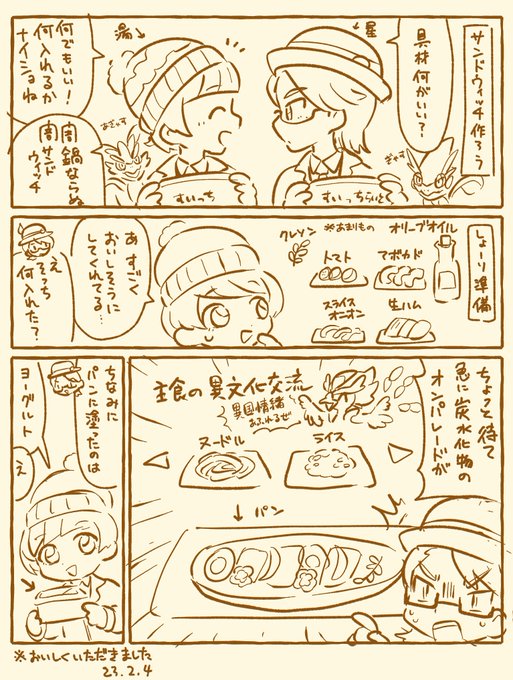 サンドウィッチ作ろう
星→
具材何がいい?
湯→
何でもいい!
何入れるか
ナイショね
闇鍋ならぬ
闇サンド
ウィッチ
あぎゃす
ぎゃす
すいっち
すいっちらいと
しょーり準備
オリーブオイル
※あまりもの
クレソン
トマト
アボカド
スライス
オニオン
生ハム
あ すごく
おいしそうに
してくれてる…
え
そっち
何入れた?
ちょっと待て
急に炭水化物の
オンパレードが
主食の異文化交流
異国情緒
あふれるぜ
ヌードル
ライス
↓パン
ちなみに
パンに塗ったのは
ヨーグルト
え
※おいしくいただきました
23.2.4